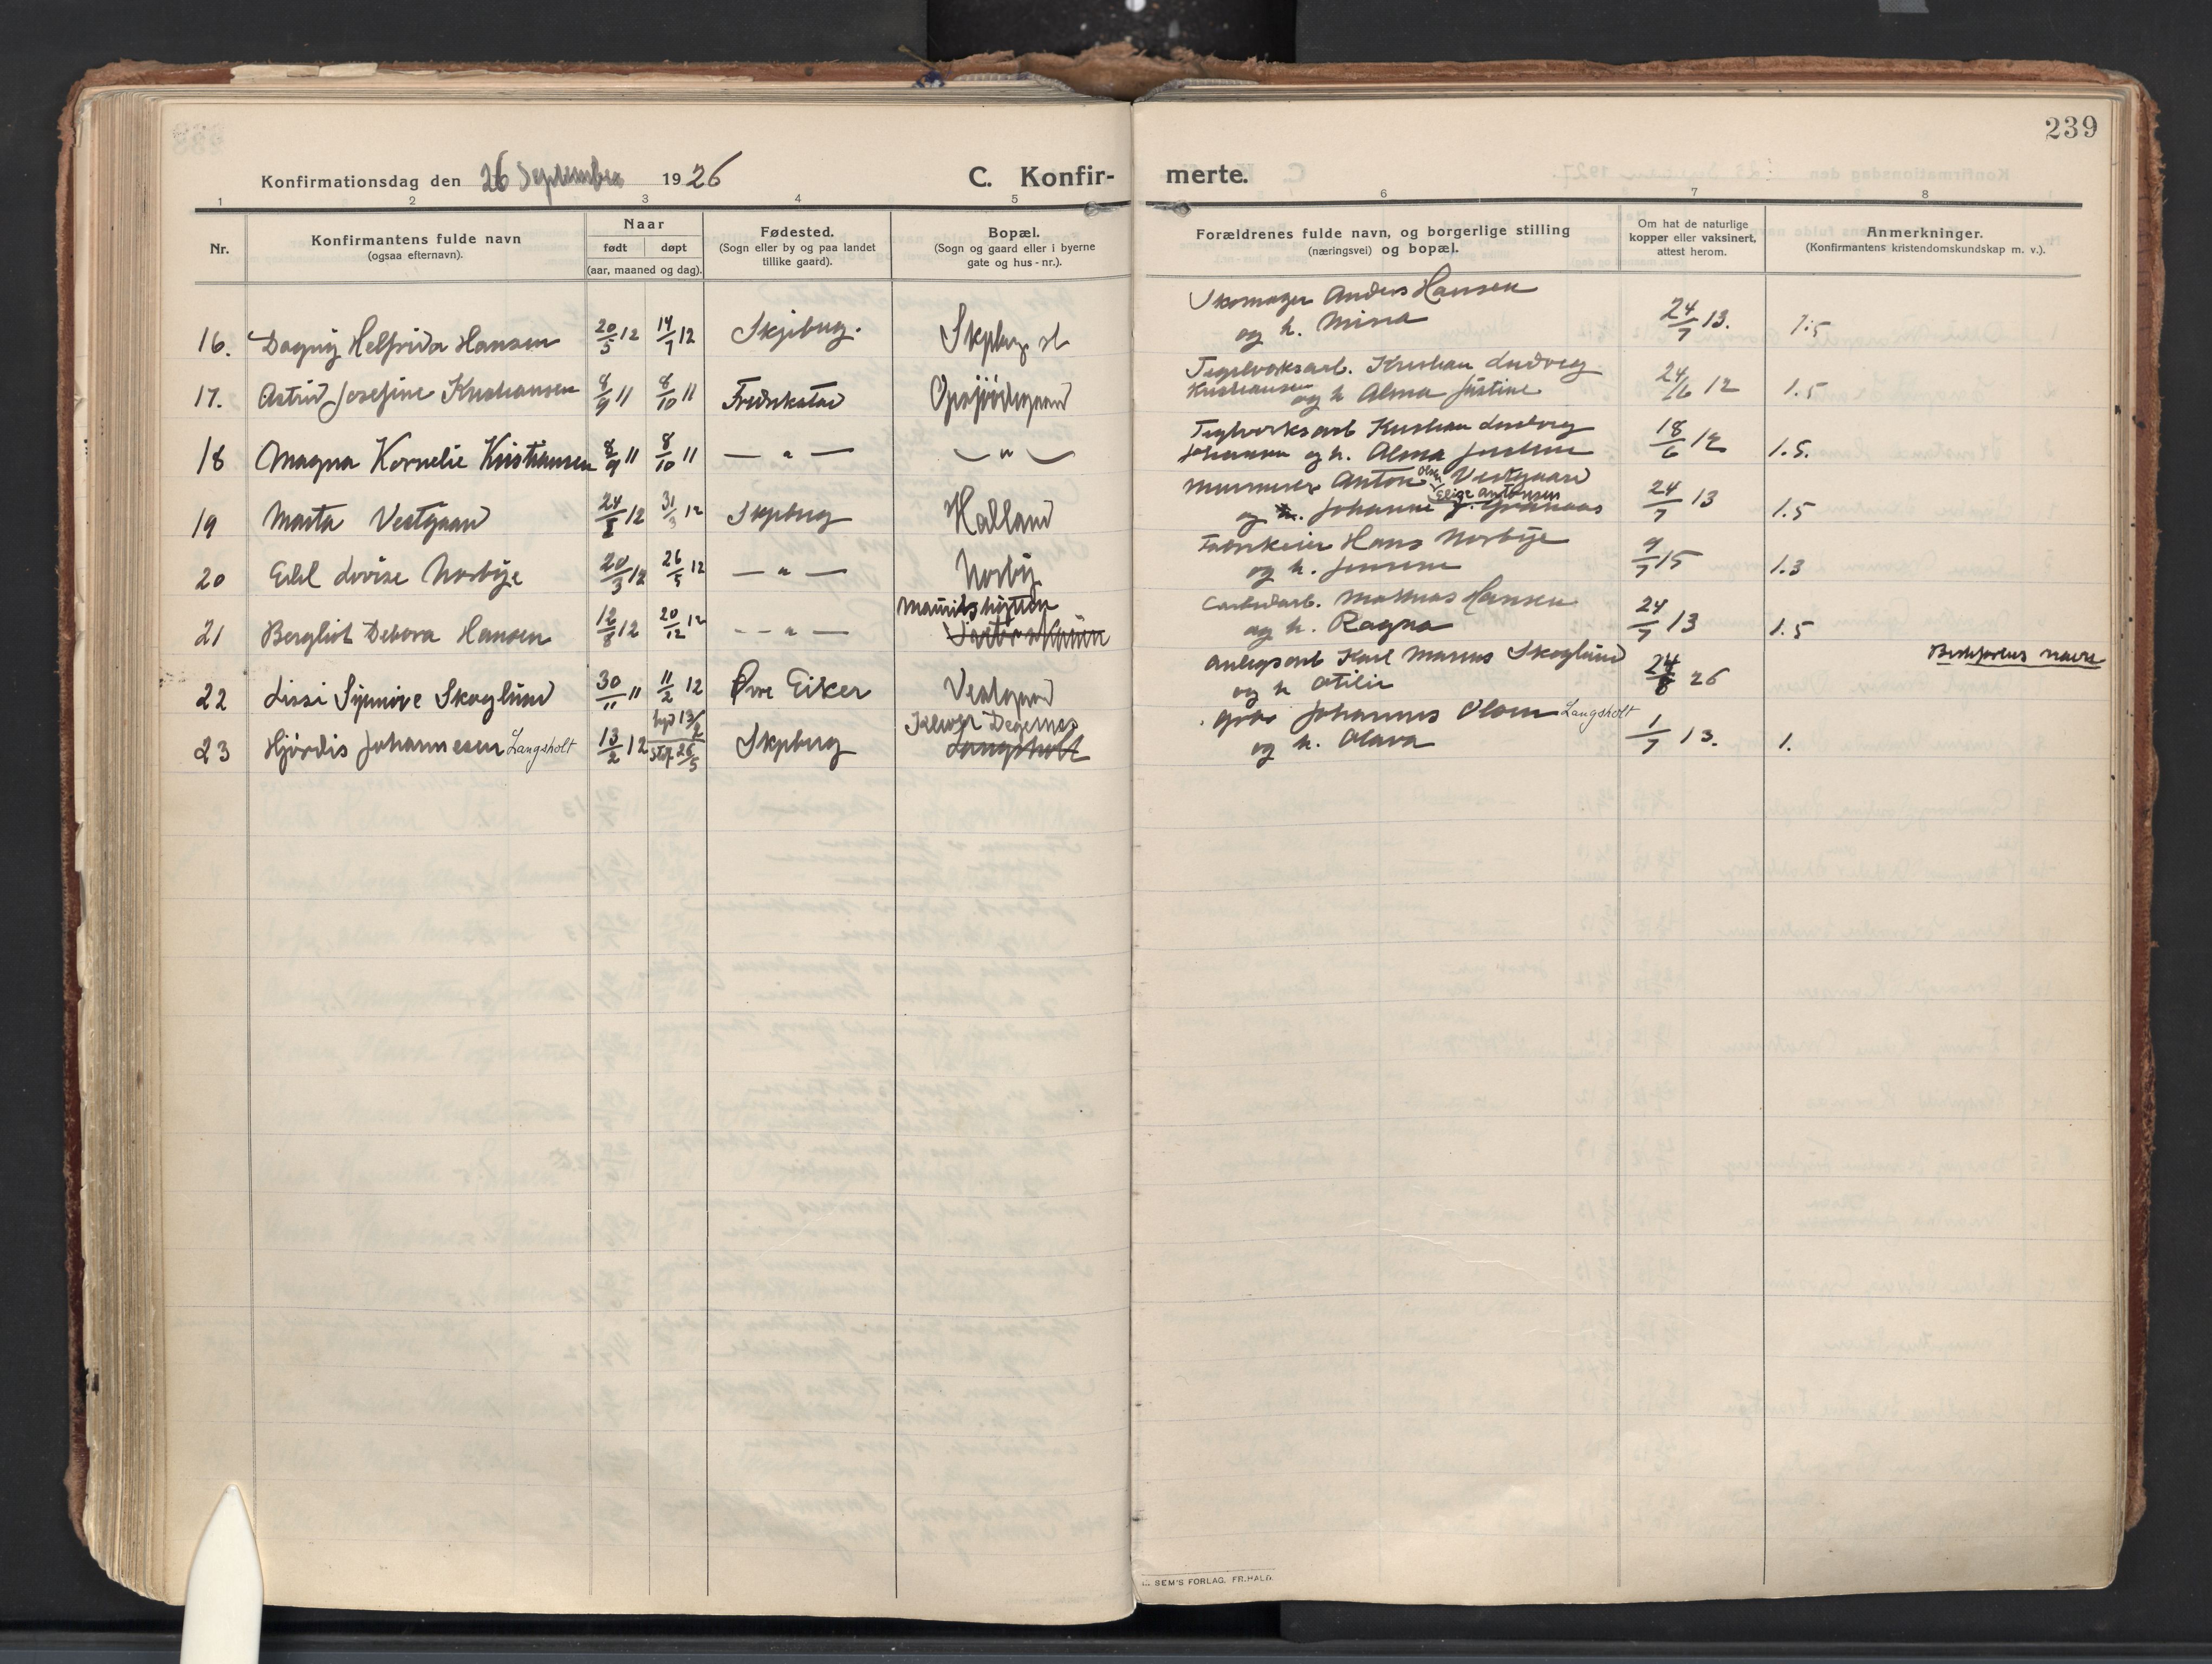 239
Konfirmationsdag den 26 September 1926 C. Konfir- merte.
1 2 3 4 5 6 7 8
Nr. Konfirmantens fulde navn (ogsaa efternavn). Naar født døpt (aar, maaned og dag). Fødested. (Sogn eller by og paa landet tillike gaard). Bopæl. (Sogn og gaard eller i byerne gate og hus-nr.). Forældrenes fulde navn, og borgerlige stilling (næringsvei) og bopæl. Om hat de naturlige kopper eller vaksinert, attest herom. Anmerkninger. (Konfirmantens kristendomskundskap m. v.).
Skomager Anders Hansen
16. Dagny Helfrida Hansen 20/5 12 14/7 12 Skjeberg. Skjeberg st og h. Mina 24/7 13. 1.5
Teglverksarb. Kristian Ludvig
17. Astrid Josefine Kristiansen 8/9 11 8/10 11 Fredrikstad Kristiansen og h Alma Justine 24/6 12 1.5
Teglverksarb Kristian Ludvig
18 Magna Kornelie Kristiansen 8/9 11 8/10 11 — " — — " — Johansen og h. Alma Justine 18/6 12 1.5.
Murmester Anton Olsen Vestgaard
Elise Antonsen
19 Marta Vestgaard 24/1 12 31/3 12 Skjeberg Halland og h. Johanne J. Grånaas 24/7 13 1.5
Fabrikeier Hans Norbye
20 Edel Lovise Norbye 20/3 12 26/5 12 — " — Norby og h. Jensine 9/7 15 1.3
Mauritshytten Carbidarb. Mathias Hansen
21 Bergliot Debora Hansen 12/8 12 20/12 12 — " — og h. Ragna 24/7 13 1.5
Anlegsarb Karl Marius Skoglund Bestefarens navn
22 Lissi Synnøve Skoglund 30/11 11 11/2 12 Øvre Eiker Vestgaard og h Otilie 24/8 26
hjd 13/2 Klever Degernes Gbr. Johannes Olsen Langsholt
23 Hjørdis Johannesen Langsholt 13/2 12 stf. 26/5 Skjeberg Langsholt og h. Olava 1/7 13. 1.
SEM'S FORLAG. FR.HALD.